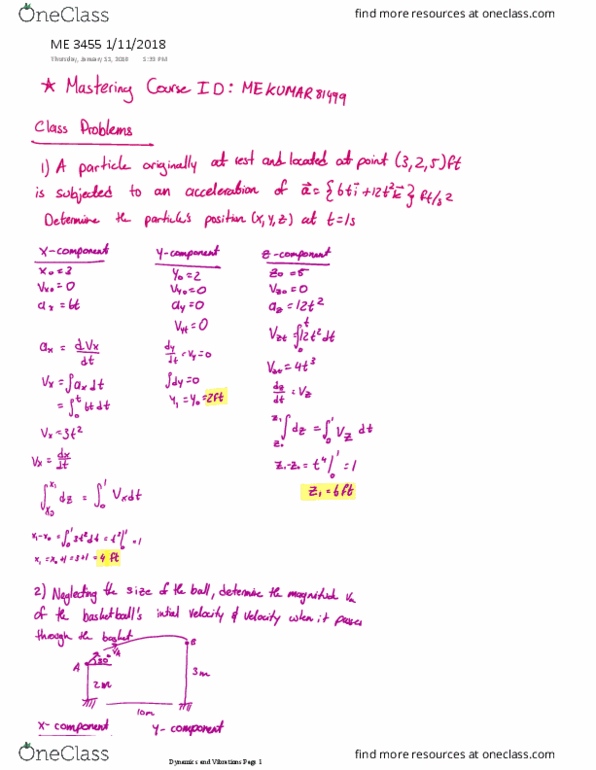 OneClass
find more resources at oneclass.com
ME 3455 1/11/2018
Thursday, January 11, 2018 1:35 PM
* Mastering Course ID: MEKUMAR81499
Class Problems
1) A particle originally at rest and located at point (3,2,5)ft
is subjected to an acceleration of a⃗={6ti⃗+12t²k⃗} ft/s2
Determine the particle's position (x,y,z) at t=1s
X-component
x₀=3
Vx₀=0
aₓ=6t
aₓ = dVx/dt
Vx=∫aₓdt
=∫₀ᵗ6tdt
Vx=3t²
Vx=dx/dt
∫dz = ∫₀¹Vxdt
x₁-x₀=∫₀¹3t²dt=t³|₀¹=1
x₁=x₀+1=3+1=4 ft
Y-component
y₀=2
Vy₀=0
ay=0
Vyt=0
dy/dt=Vy=0
∫dy=0
Y₁=Y₀=2ft
Z-component
Z₀=5
Vz₀=0
az=12t²
Vzt=∫₀ᵗ12t²dt
Vzt=4t³
dz/dt=Vz
∫dz=∫₀¹Vz dt
Z₁-Z₀=t⁴|₀¹=1
Z₁=6ft
2) Neglecting the size of the ball, determine the magnitude Va
of the basketball's intial velocity & velocity when it passes
through the basket
VA
B
A
30°
2m
3m
10m
X-component Y-component
OneClass
find more resources at oneclass.com
Dynamics and Vibrations Page 1